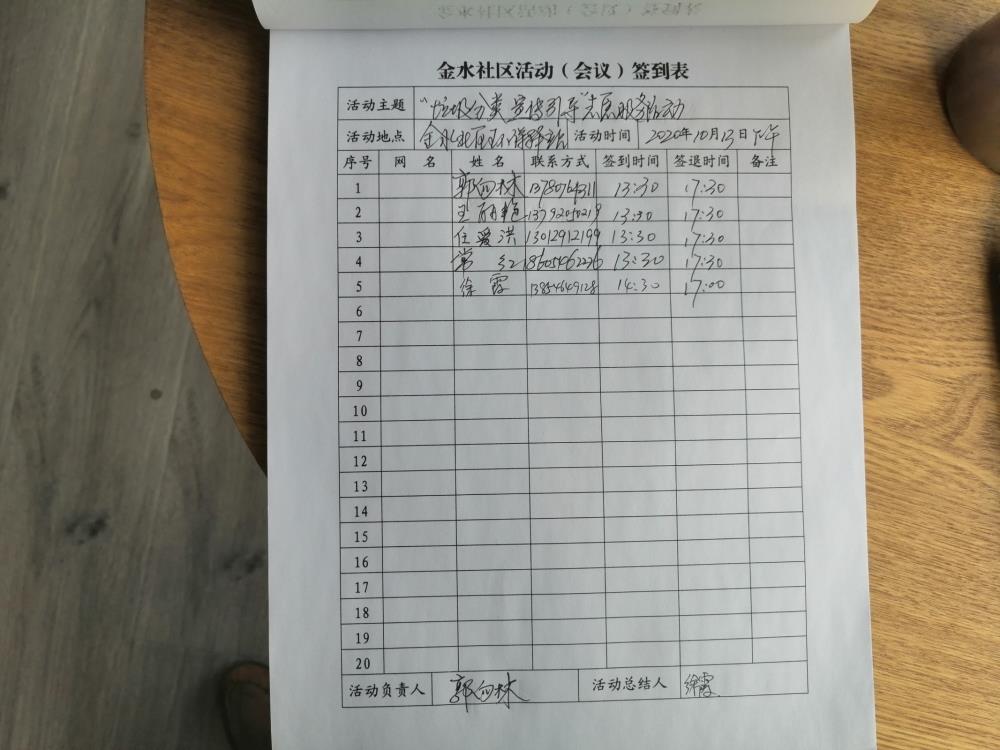 金水社区活动（会议）签到表
活动主题 “垃圾分类宣传引导”志愿服务活动
活动地点 金水北 活动时间 2020年10月13日下午
序号 网 名 姓 名 联系方式 签到时间 签退时间 备注
1 郭向林 13:30 17:30
2 王丽艳 13792050219 13:30 17:30
3 任爱洪 13012912199 13:30 17:30
4 常红 18605462236 13:30 17:30
5 徐霞 13854649128 14:30 17:00
6
7
8
9
10
11
12
13
14
15
16
17
18
19
20
活动负责人 郭向林 活动总结人 徐霞